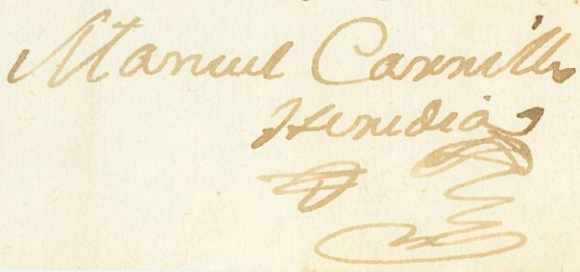 Manuel Carrillo
Heredia